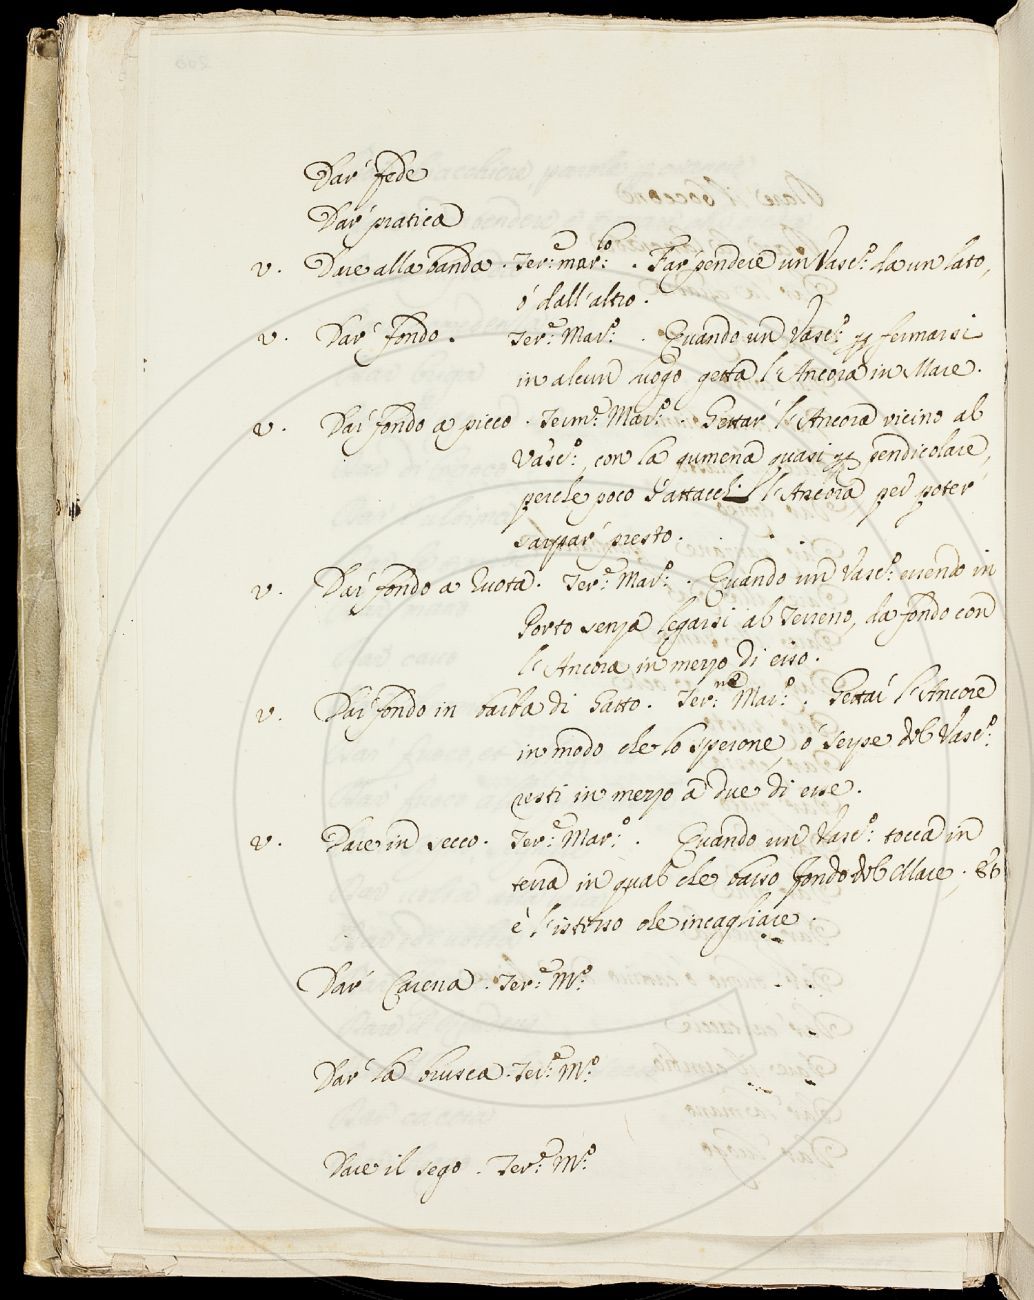 Dar' fede
Dar' pratica
v. Dare alla banda. Ter.e mar.lo . Far pendere un Vasc.o da un lato,
ó dall'altro.
v. Dar' fondo. Ter.e Mar.o . Quando un Vasc.o p fermarsi
in alcun luogo getta l'Ancora in Mare.
v. Dar fondo a picco. Term.e Mar.o . Gettar' l'Ancora vicino al
Vasc.o, con la gumena quasi p pendicolare,
perche poco s'attacchi l'Ancora, per poter'
sarpar' presto.
v. Dar fondo a Ruota. Ter.e Mar.o . Quando un Vasc.o essendo in
Porto senza legarsi al Terreno, da fondo con
l'Ancora in mezzo di esso.
v. Dar fondo in barba di Gatto. Ter.ne Mar.o . Gettar l'Ancore
in modo che lo sperone, ó Serpe del Vasc.o
resti in mezzo a due di esse.
v. Dare in secco. Ter.e Mar.o . Quando un Vasc.o tocca in
terra in qual che basso fondo del Mare. Et
è l'istesso che incagliare.
Dar' Carena. Ter.e M.o
Dar' la brusca. Ter.e M.o
Dare il sego. Ter.e M.o